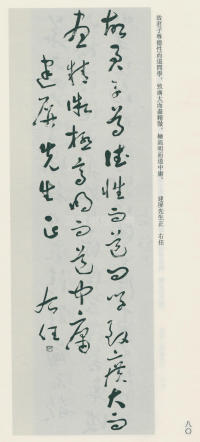 故君子尊德性而道問學，致廣大而盡精微，極高明而道中庸。 建屏先生正 右任
故君子尊德性而道問學致廣大而
盡精微極高明而道中庸
建屏先生正 右任
八〇